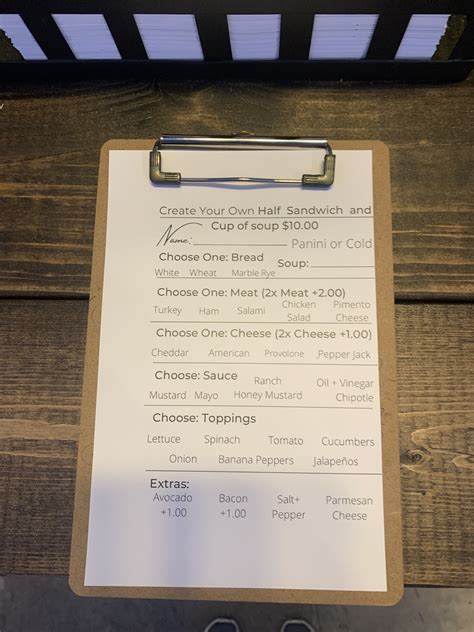 Create Your Own Half Sandwich and
Cup of soup $10.00
Name: Panini or Cold
Choose One: Bread Soup:
White Wheat Marble Rye
Choose One: Meat (2x Meat +2.00)
Turkey Ham Salami Chicken Salad Pimento Cheese
Choose One: Cheese (2x Cheese +1.00)
Cheddar American Provolone Pepper Jack
Choose: Sauce Ranch Oil + Vinegar
Mustard Mayo Honey Mustard Chipotle
Choose: Toppings
Lettuce Spinach Tomato Cucumbers
Onion Banana Peppers Jalapeños
Extras:
Avocado Bacon Salt+ Parmesan
+1.00 +1.00 Pepper Cheese